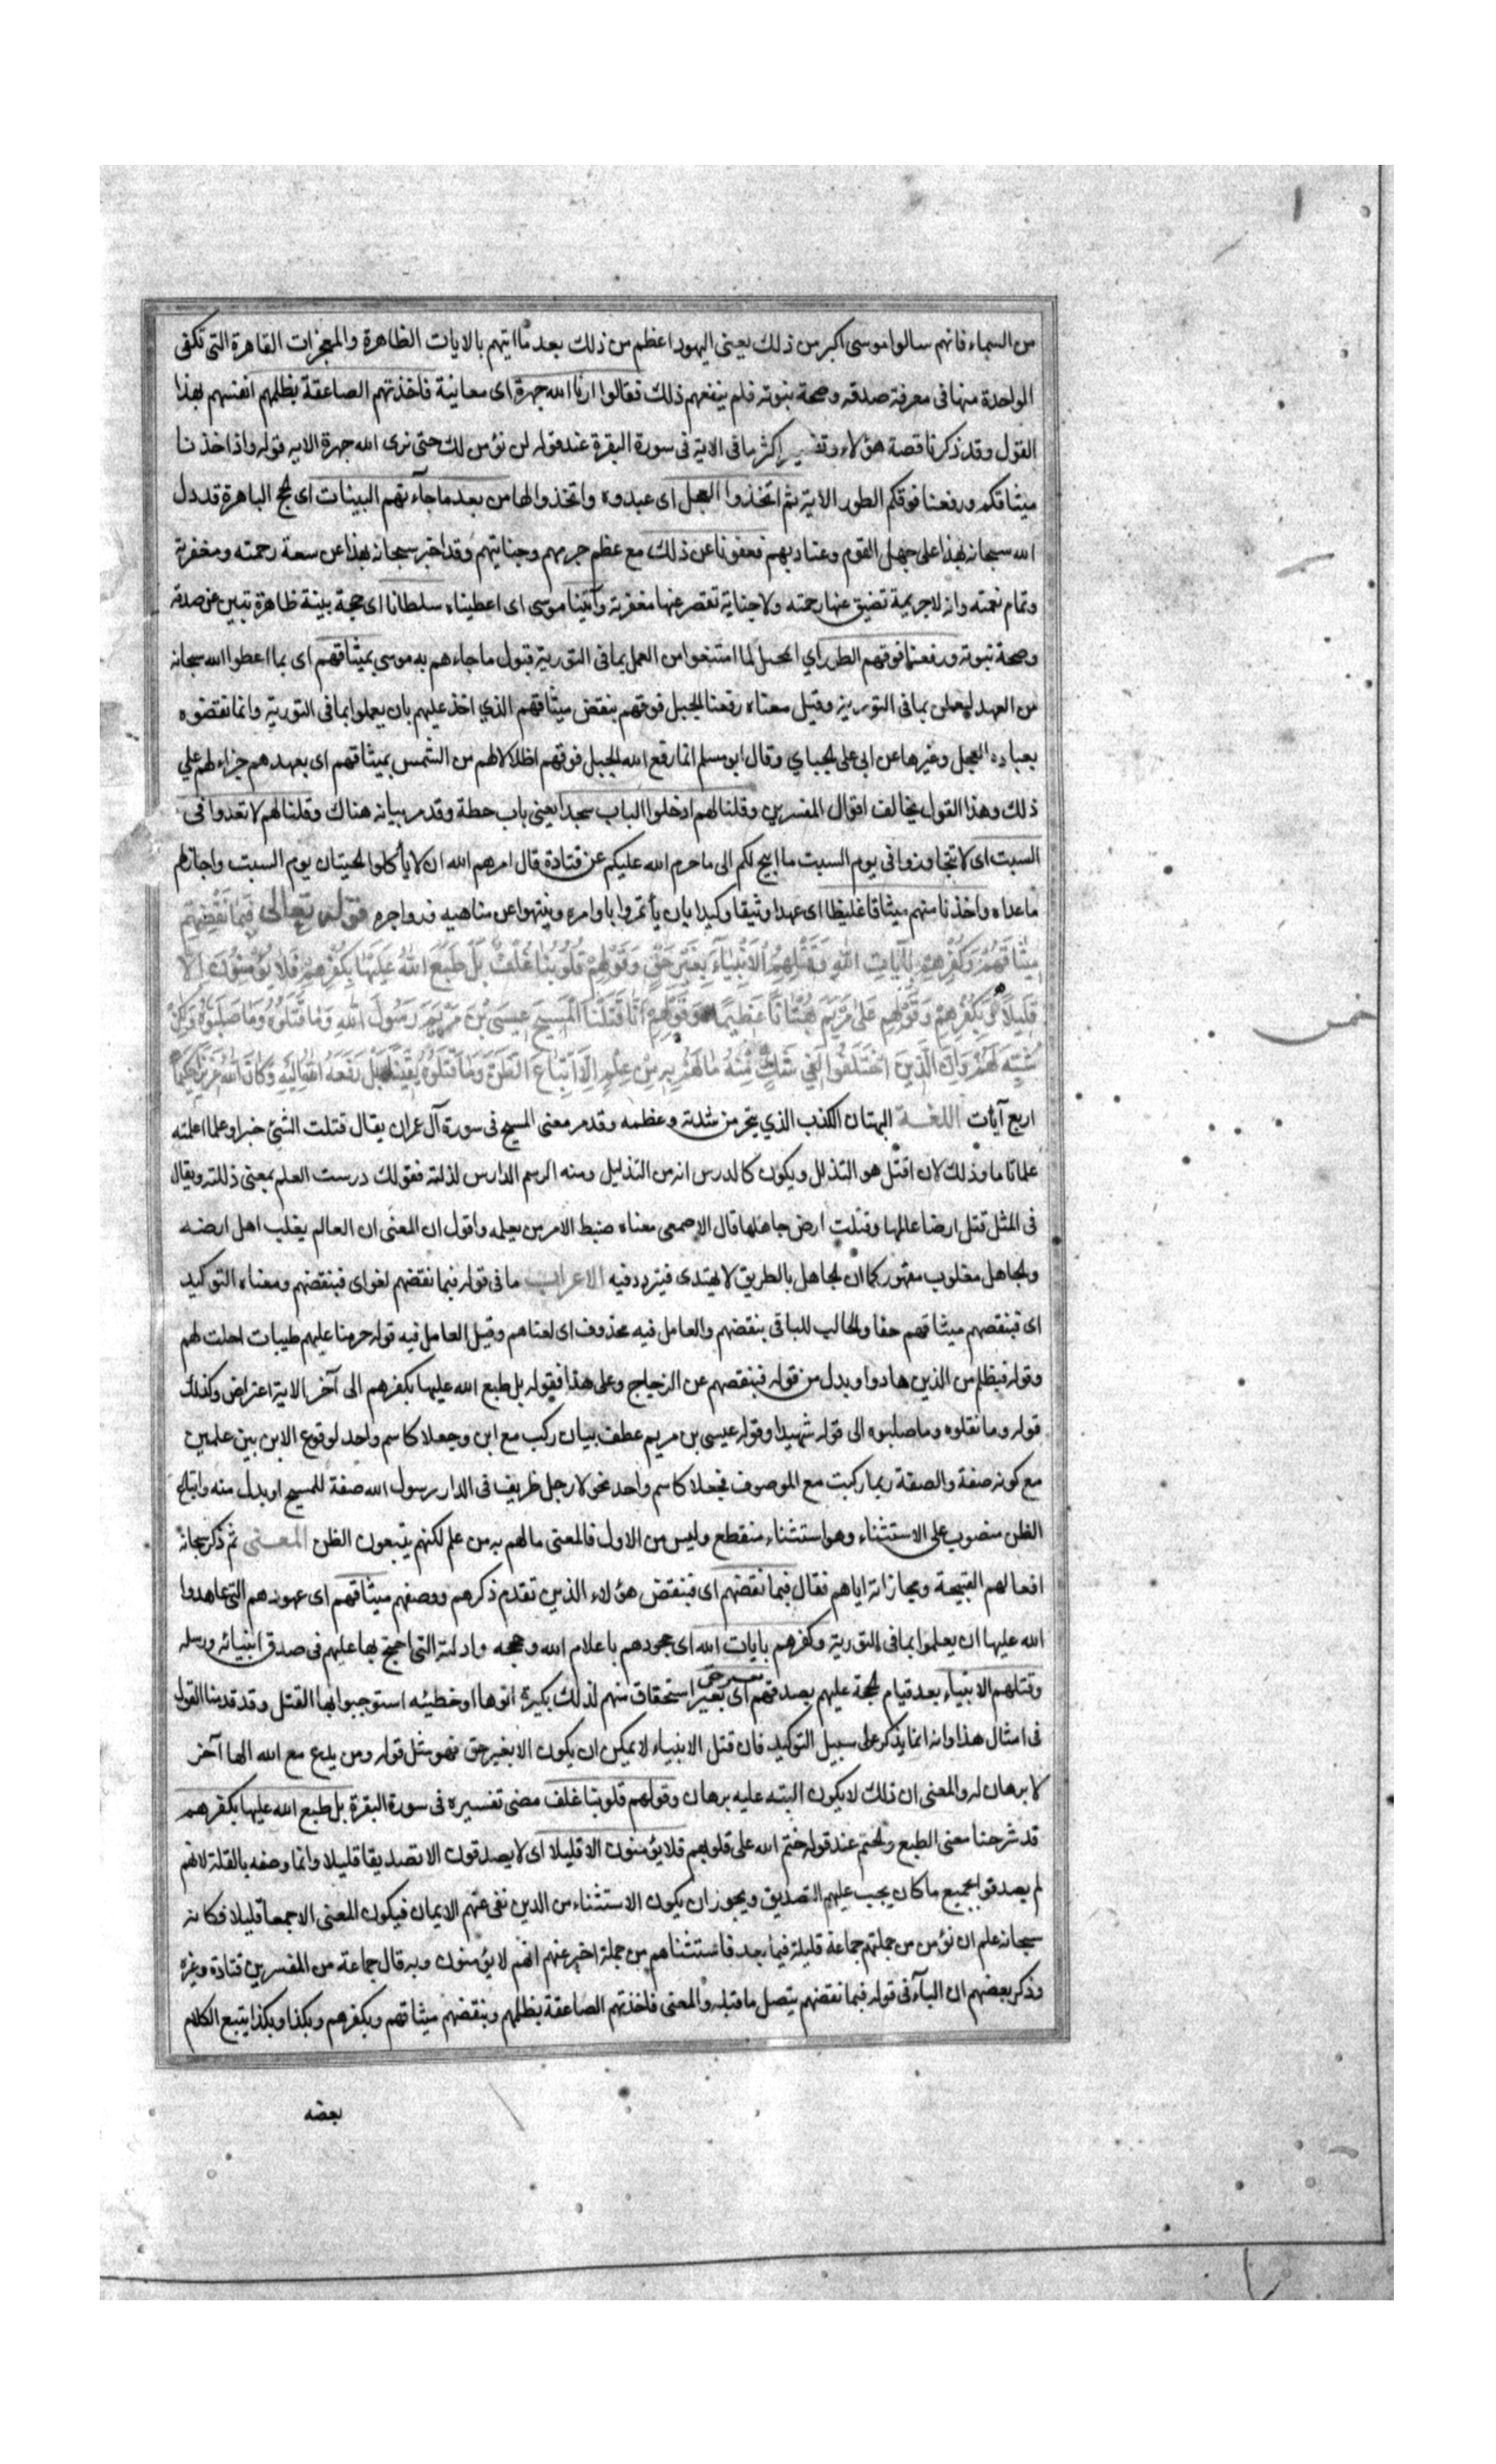 من السماء فانهم سالوا موسى اكبر من ذلك يعنى اليهود اعظم من ذلك بعد ما اتيهم بالايات الظاهرة والمعجزات القاهرة التى تكفى
الواحدة منها فى معرفة صدقه وصحة بنوته فلم ينفعهم ذلك فقالوا ارنا الله جهرة اى معاينة فاخذتهم الصاعقة بظلمهم انفسهم بهذا
القول وقد ذكرنا قصة هؤلاء وتفسير اكثر ما فى الاية فى سورة البقرة عند قوله لن نؤمن لك حتى نرى الله جهرة الايه قوله واذ اخذنا
ميثاقكم ورفعنا فوقكم الطور الاية ثم اتخذوا العجل اى عبدوه واتخذوا لها من بعد ما جآءتهم البينات اى الحج الباهرة قد دل
الله سبحانه بهذا على جهل القوم وعنادهم فعفونا عن ذلك مع عظم جرمهم وجنايتهم وقد اخبر سبحانه بهذا عن سعة رحمته ومغفرته
وتمام نعمته وانه لا جريمة تضيق عنها رحمته ولا جناية تقصر عنها مغفرته وآتينا موسى اى اعطيناه سلطانا اى حجة بينة ظاهرة تبين عن صدقه
وصحة نبوته ورفعنا فوقهم الطور اي الجبل لما امتنعوا من العمل بما فى التورية وقبول ما جاءهم به موسى بميثاقهم اى بما اعطوا الله سبحانه
من العهد ليعملن بما فى التورية وقيل معناه رفعنا الجبل فوقهم بنقض ميثاقهم الذي اخذ عليهم بان يعملوا بما فى التورية وانما نقضوه
بعبادة العجل وغيرها عن ابى على الجباي وقال ابو مسلم انما رفع الله الجبل فوقهم اظلالا لهم من الشمس بميثاقهم اى بعهدهم جزاء لهم علي
ذلك وهذا القول يخالف اقوال المفسرين وقلنا لهم ادخلوا الباب سجدا يعنى باب حطة وقد مر بيانه هناك وقلنا لهم لا تعدوا فى
السبت اى لا تتجاوزوا فى يوم السبت ما ابيح لكم الى ما حرم الله عليكم عن قتادة قال امرهم الله ان لا يأكلوا الحيتان يوم السبت واجاز لهم
ما عداه واخذنا منهم ميثاقا غليظا اى عهدا وثيقا وكيدا بان يأتمروا باوامره وينتهوا عن مناهيه وزواجره قوله تعالى فَبِمَا نَقْضِهِمْ
مِيثَاقَهُمْ وَكُفْرِهِمْ بِآيَاتِ اللهِ وَقَتْلِهِمُ الأَنْبِيَآءَ بِغَيْرِ حَقٍّ وَقَوْلِهِمْ قُلُوبُنَا غُلْفٌ بَلْ طَبَعَ اللهُ عَلَيْهَا بِكُفْرِهِمْ فَلَا يُؤْمِنُونَ اِلَّا
قَلِيلًا وَبِكُفْرِهِمْ وَقَوْلِهِمْ عَلَى مَرْيَمَ بُهْتَانًا عَظِيمًا وَقَوْلِهِمْ اِنَّا قَتَلْنَا الْمَسِيحَ عِيسَى بْنَ مَرْيَمَ رَسُولَ اللهِ وَمَا قَتَلُوهُ وَمَا صَلَبُوهُ وَلَكِنْ
شُبِّهَ لَهُمْ وَاِنَّ الَّذِينَ اخْتَلَفُوا فِيهِ لَفِي شَكٍّ مِنْهُ مَا لَهُمْ بِهِ مِنْ عِلْمٍ اِلَّا اتِّبَاعَ الظَّنِّ وَمَا قَتَلُوهُ يَقِينًا بَلْ رَفَعَهُ اللهُ اِلَيْهِ وَكَانَ اللهُ عَزِيزًا حَكِيمًا
اربع آيات اللغـة البهتان الكذب الذي يتحير من شدته وعظمه وقد مر معنى المسيح فى سورة آل عمران يقال قتلت الشئ خبرا وعلما اعلمته
علما تاما وذلك لان اقتل هو التذلل ويكون كالدرس انه من التذليل ومنه الرسم الدارس لذلته فقولك درست العلم بمعنى ذللته ويقال
فى المثل قتل ارضا عالمها وقتلت ارض جاهلها قال الاصمعى معناه ضبط الامر من يعلمه واقول ان المعنى ان العالم يغلب اهل ارضه
والجاهل مغلوب مقهور كما ان الجاهل بالطريق لا يهتدى فيتردد فيه الاعراب ما فى قوله فبما نقضهم لغو اى فبنقضهم ومعناه التوكيد
اى فبنقضهم ميثاقهم حقا والجالب للباء فى بنقضهم والعامل فيه محذوف اى لعناهم وقيل العامل فيه قوله حرمنا عليهم طيبات احلت لهم
وقوله فبظلم من الذين هادوا وبدل من قوله فبنقضهم عن الزجاج وعلى هذا فيقوله بل طبع الله عليها بكفرهم الى آخر الاية اعتراض وكذلك
قوله وما نقلوه وما صلبوه الى قوله شهيدا وقوله عيسى بن مريم عطف بيان ركب مع ابن وجعلا كاسم واحد لوقوع الابن بين علمين
مع كونه صفة والصفة ربما ركبت مع الموصوف فجعلا كاسم واحد نحو لا رجل ظريف فى الدار رسول الله صفة للمسيح او بدل منه واتباع
الظن منصوب على الاستثناء وهو استثناء منقطع وليس من الاول فالمعنى ما لهم به من علم لكنهم يتبعون الظن المعـنى ثم ذكر سبحانه
افعالهم القبيحة ومجازاته اياهم فقال فبما نقضهم اى فبنقض هؤلاء الذين تقدم ذكرهم ووصفهم ميثاقهم اى عهودهم التى عاهدوا
الله عليها ان يعلموا بما فى التورية وكفرهم بايات الله اى جحودهم باعلام الله وحججه وادلته التى احتج بها عليهم فى صدق انبيائه ورسله
وقتلهم الانبياء بعد قيام الحجة عليهم بصدقهم بغير حق اى بغير استحقاق منهم لذلك بكبيرة اتوها او خطيئه استوجبوا بها القتل وقد قدمنا القول
فى امثال هذا وانه انما يذكر على سبيل التوكيد فان قتل الانبياء لا يمكن ان يكون الا بغير حق فهو مثل قوله ومن يدع مع الله الها آخر
لا برهان له والمعنى ان ذلك لا يكون البته عليه برهان وقولهم قلوبنا غلف مضى تفسيره فى سورة البقرة بل طبع الله عليها بكفرهم
قد شرحنا معنى الطبع والختم عند قوله ختم الله على قلوبهم فلا يؤمنون الا قليلا اى لا يصدقون الا تصديقا قليلا وانما وصفه بالقلة لانهم
لم يصدقوا بجميع ما كان يجب عليهم التصديق ويجوز ان يكون الاستثناء من الذين نفى عنهم الايمان فيكون المعنى الا جمعا قليلا فكانه
سبحانه علم ان نؤمن من جملتهم جماعة قليلة فيما بعد فاستثناهم من جملة اخبر عنهم انهم لا يؤمنون وبه قال جماعة من المفسرين قتادة وغيره
وذكر بعضهم ان البآء فى قوله فبما نقضهم يتصل ما قبله والمعنى فاخذتهم الصاعقة بظلمهم وبنقضهم ميثاقهم وبكفرهم وبكذا وبكذا يتبع الكلام
بعضه